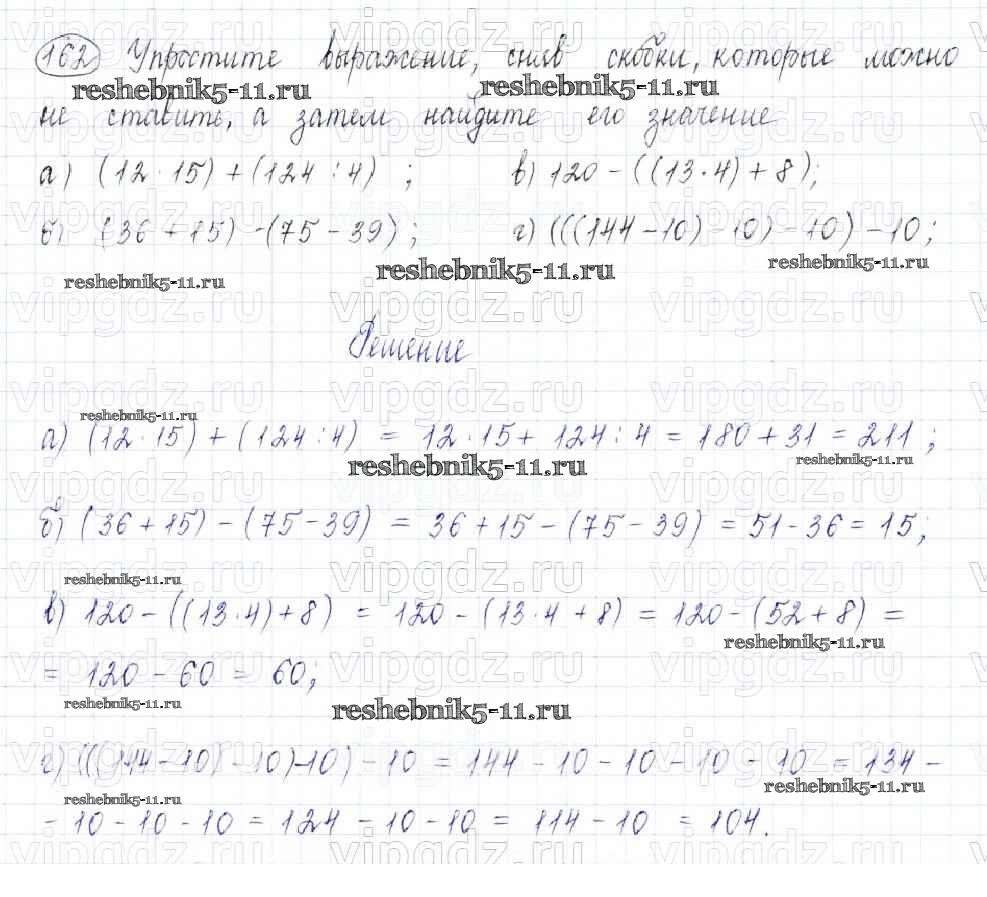 162 Упростите выражение, сняв скобки, которые можно
reshebnik5-11.ru reshebnik5-11.ru
не ставить, а затем найдите его значение
а) (12 · 15) + (124 : 4) ; в) 120 - ((13 · 4) + 8);
б) (36 + 15) - (75 - 39) ; г) (((144 - 10) - 10) - 10) - 10;
reshebnik5-11.ru reshebnik5-11.ru reshebnik5-11.ru
vipgdz.ru vipgdz.ru vipgdz.ru
Решение
vipgdz.ru vipgdz.ru vipgdz.ru
reshebnik5-11.ru
а) (12 · 15) + (124 : 4) = 12 · 15 + 124 : 4 = 180 + 31 = 211 ;
reshebnik5-11.ru reshebnik5-11.ru
vipgdz.ru vipgdz.ru vipgdz.ru
б) (36 + 15) - (75 - 39) = 36 + 15 - (75 - 39) = 51 - 36 = 15;
reshebnik5-11.ru
vipgdz.ru vipgdz.ru vipgdz.ru
в) 120 - ((13 · 4) + 8) = 120 - (13 · 4 + 8) = 120 - (52 + 8) =
reshebnik5-11.ru
= 120 - 60 = 60;
reshebnik5-11.ru reshebnik5-11.ru
г) (((144 - 10) - 10) - 10) - 10 = 144 - 10 - 10 - 10 - 10 = 134 -
reshebnik5-11.ru reshebnik5-11.ru
- 10 - 10 - 10 = 124 - 10 - 10 = 114 - 10 = 104.
vipgdz.ru vipgdz.ru vipgdz.ru